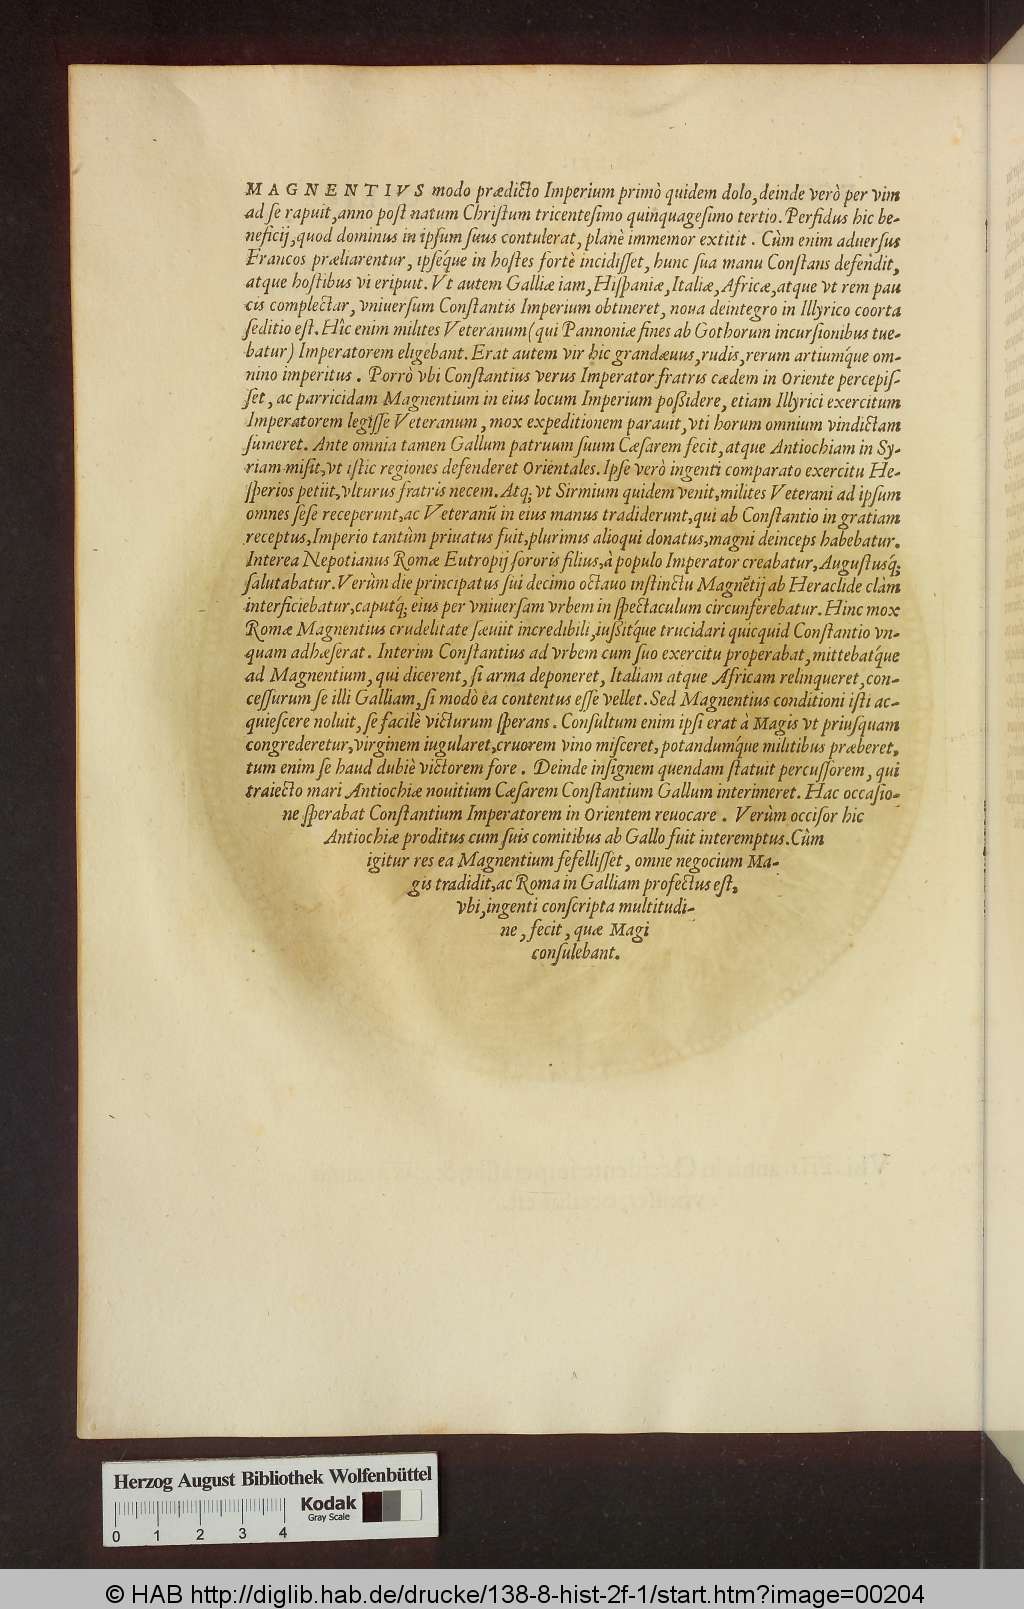 MAGNENTIVS modo prædicto Imperium primò quidem dolo, deinde verò per vim
ad ſe rapuit, anno poſt natum Chriſtum tricenteſimo quinquageſimo tertio. Perfidus hic be-
neficij, quod dominus in ipſum ſuus contulerat, planè immemor extitit. Cùm enim aduerſus
Francos præliarentur, ipſeque in hoſtes fortè incidiſſet, hunc ſua manu Conſtans defendit,
atque hoſtibus vi eripuit. Vt autem Galliæ iam, Hiſpaniæ, Italiæ, Africæ, atque vt rem pau
cis complectar, vniuerſum Conſtantis Imperium obtineret, noua deintegro in Illyrico coorta
ſeditio eſt. Hîc enim milites Veteranum (qui Pannoniæ fines ab Gothorum incurſionibus tue-
batur) Imperatorem eligebant. Erat autem vir hic grandæuus, rudis, rerum artiumq́ue om-
nino imperitus. Porrò vbi Conſtantius verus Imperator fratris cædem in Oriente percepiſ-
ſet, ac parricidam Magnentium in eius locum Imperium poßidere, etiam Illyrici exercitum
Imperatorem legiſſe Veteranum, mox expeditionem parauit, vti horum omnium vindictam
ſumeret. Ante omnia tamen Gallum patruum ſuum Cæſarem fecit, atque Antiochiam in Sy-
riam miſit, vt iſtic regiones defenderet Orientales. Ipſe verò ingenti comparato exercitu He-
ſperios petiit, vlturus fratris necem. Atq; vt Sirmium quidem venit, milites Veterani ad ipſum
omnes ſeſe receperunt, ac Veteranū in eius manus tradiderunt, qui ab Conſtantio in gratiam
receptus, Imperio tantùm priuatus fuit, plurimis alioqui donatus, magni deinceps habebatur.
Interea Nepotianus Romæ Eutropij ſororis filius, à populo Imperator creabatur, Auguſtusq́;
ſalutabatur. Verùm die principatus ſui decimo octauo inſtinctu Magnētij ab Heraclide clàm
interficiebatur, caputq́; eius per vniuerſam vrbem in ſpectaculum circunferebatur. Hinc mox
Romæ Magnentius crudelitate ſæuiit incredibili, iußitq́ue trucidari quicquid Conſtantio vn-
quam adhæſerat. Interim Conſtantius ad vrbem cum ſuo exercitu properabat, mittebatq́ue
ad Magnentium, qui dicerent, ſi arma deponeret, Italiam atque Africam relinqueret, con-
ceſſurum ſe illi Galliam, ſi modò ea contentus eſſe vellet. Sed Magnentius conditioni iſti ac-
quieſcere noluit, ſe facilè victurum ſperans. Conſultum enim ipſi erat à Magis vt priuſquam
congrederetur, virginem iugularet, cruorem vino miſceret, potandumq́ue militibus præberet,
tum enim ſe haud dubiè victorem fore. Deinde inſignem quendam ſtatuit percuſſorem, qui
traiecto mari Antiochiæ nouitium Cæſarem Conſtantium Gallum interimeret. Hac occaſio-
ne ſperabat Conſtantium Imperatorem in Orientem reuocare. Verùm occiſor hic
Antiochiæ proditus cum ſuis comitibus ab Gallo fuit interemptus. Cùm
igitur res ea Magnentium fefelliſſet, omne negocium Ma-
gis tradidit, ac Roma in Galliam profectus eſt,
vbi, ingenti conſcripta multitudi-
ne, fecit, quæ Magi
conſulebant.
Herzog August Bibliothek Wolfenbüttel
Kodak
Gray Scale
0 1 2 3 4
© HAB http://diglib.hab.de/drucke/138-8-hist-2f-1/start.htm?image=00204